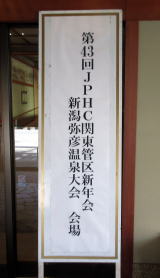 第43回JPHC関東管区新年会
新潟弥彦温泉大会 会場